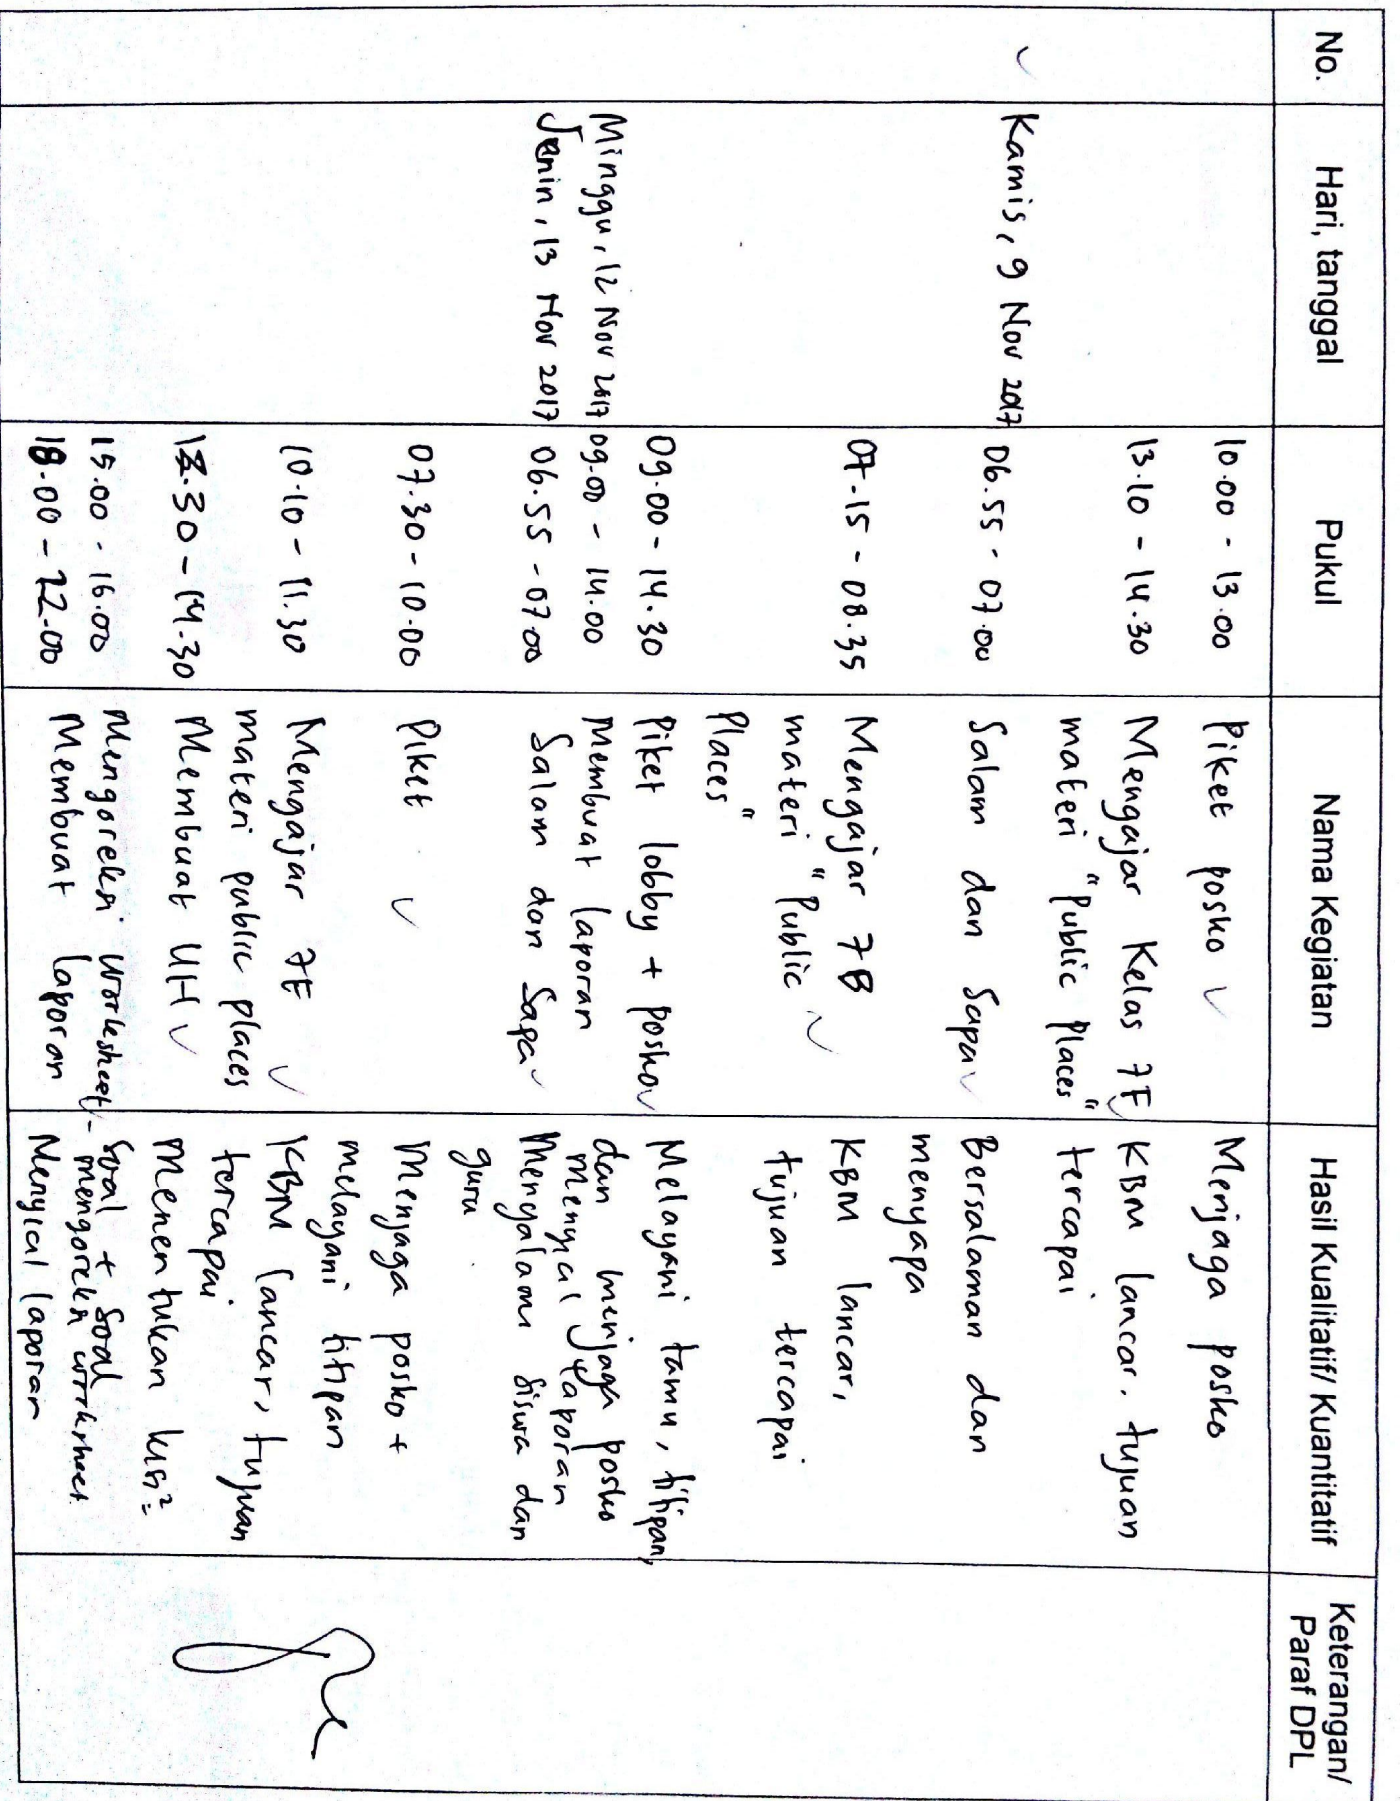 No. Hari, tanggal Pukul Nama Kegiatan Hasil Kualitatif/ Kuantitatif Keterangan/
Paraf DPL
10.00 - 13.00 Piket posko ✓ Menjaga posko
13.10 - 14.30 Mengajar Kelas 7F ✓ KBM lancar, tujuan
materi "Public Places" tercapai
✓ Kamis, 9 Nov 2017 06.55 - 07.00 Salam dan Sapa ✓ Bersalaman dan
menyapa
07.15 - 08.35 Mengajar 7B KBM lancar,
materi "Public ✓ tujuan tercapai
Places"
09.00 - 14.30 Piket lobby + posko ✓ Melayani tamu, titipan,
dan menjaga posko
Minggu, 12 Nov 2017 09.00 - 14.00 Membuat laporan Menyicil laporan
Senin, 13 Nov 2017 06.55 - 07.00 Salam dan Sapa ✓ Menyalami siswa dan
guru
07.30 - 10.00 Piket ✓ Menjaga posko +
melayani titipan
10.10 - 11.30 Mengajar 7E ✓ KBM lancar, tujuan
materi public places tercapai
.30 - 14.30 Membuat UH ✓ Menentukan kisi²
soal + soal
15.00 - 16.00 Mengoreksi worksheet ✓ - mengoreksi worksheet
18.00 - 22.00 Membuat laporan Menyicil laporan